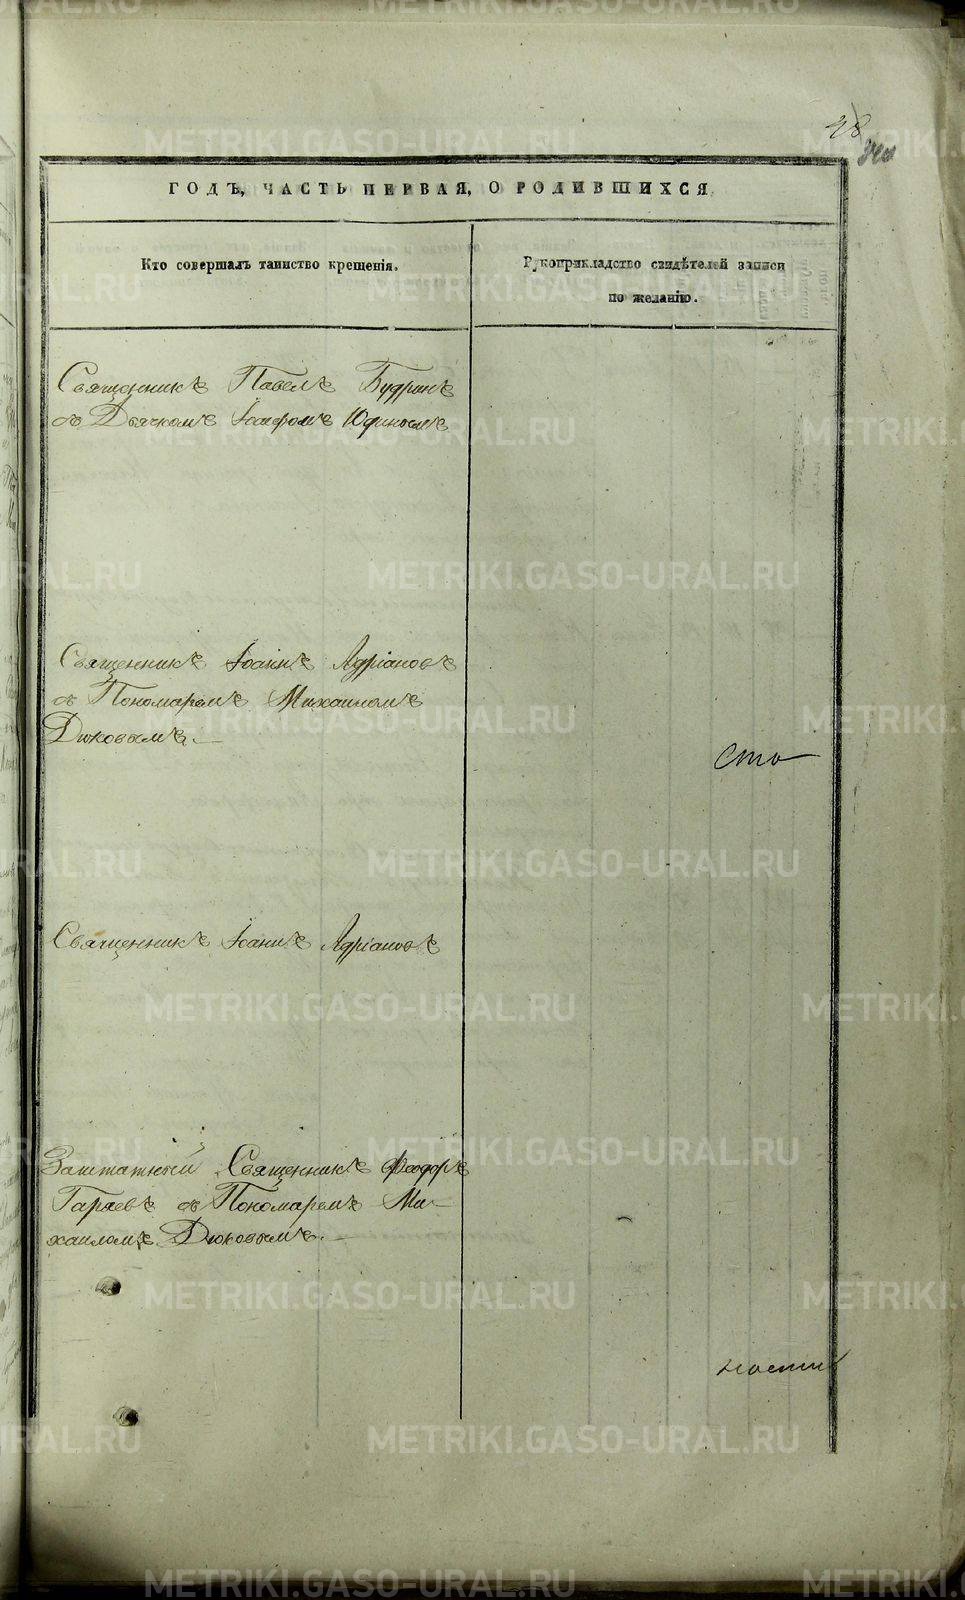 28
ГОДЪ, ЧАСТЬ ПЕРВАЯ, О РОДИВШИХСЯ
Кто совершалъ таинство крещенія.
Рукоприкладство свидѣтелей записи
по желанію.
Священникъ Павелъ Будринъ
съ Дьячкомъ Іосифомъ Юдинымъ
Священникъ Іоаннъ Адріановъ
съ Пономаремъ Михаиломъ
Дюковымъ.
сто
Священникъ Іоаннъ Адріановъ
Заштатный Священникъ Феодоръ
Гаряевъ съ Пономаремъ Ми-
хаиломъ Дюковымъ.
METRIKI.GASO-URAL.RU